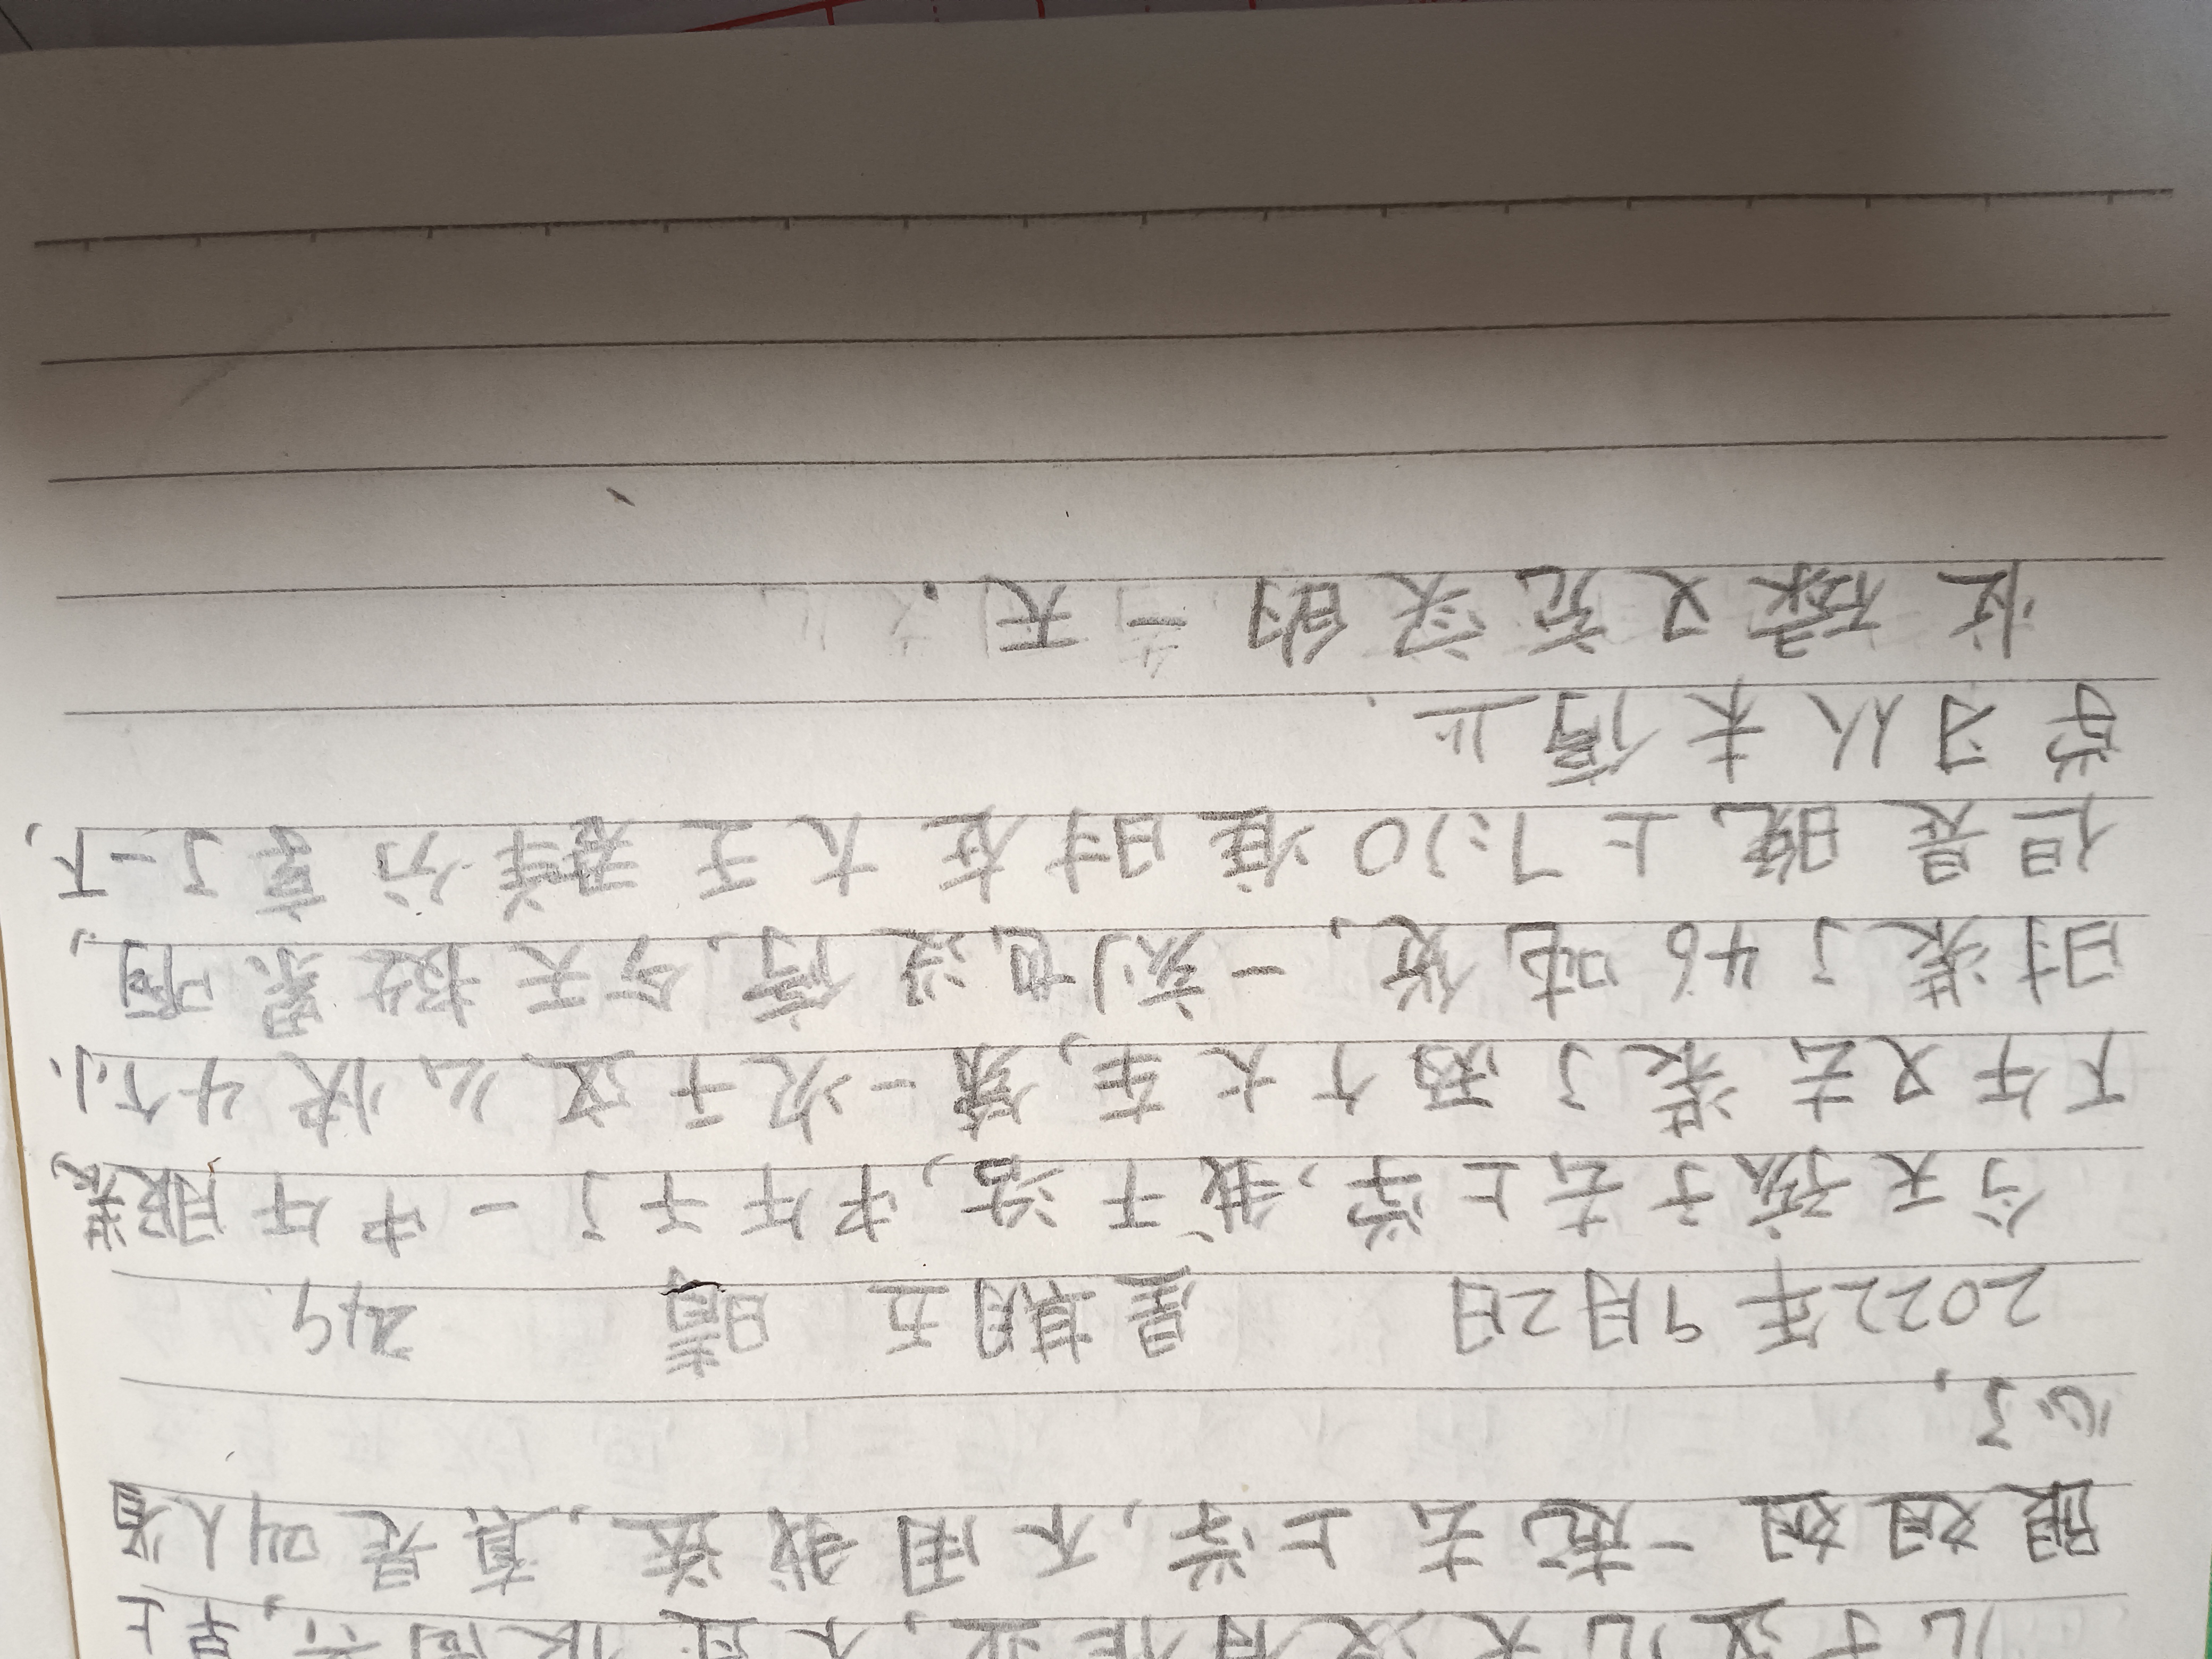 跟姐姐一起去上学,不用我送,真是叫人省
心了.
2022年9月2日 星期五 晴
今天孩子去上学,我干活,中午干了一中午服装
下午又去装了两个大车,第一次干这么快4个小
时装了46吨货,一刻也没停,今天挺累啊,
但是晚上7:10准时在大玉群分享了一下,
学习从未停止.
忙碌又充实的一天.